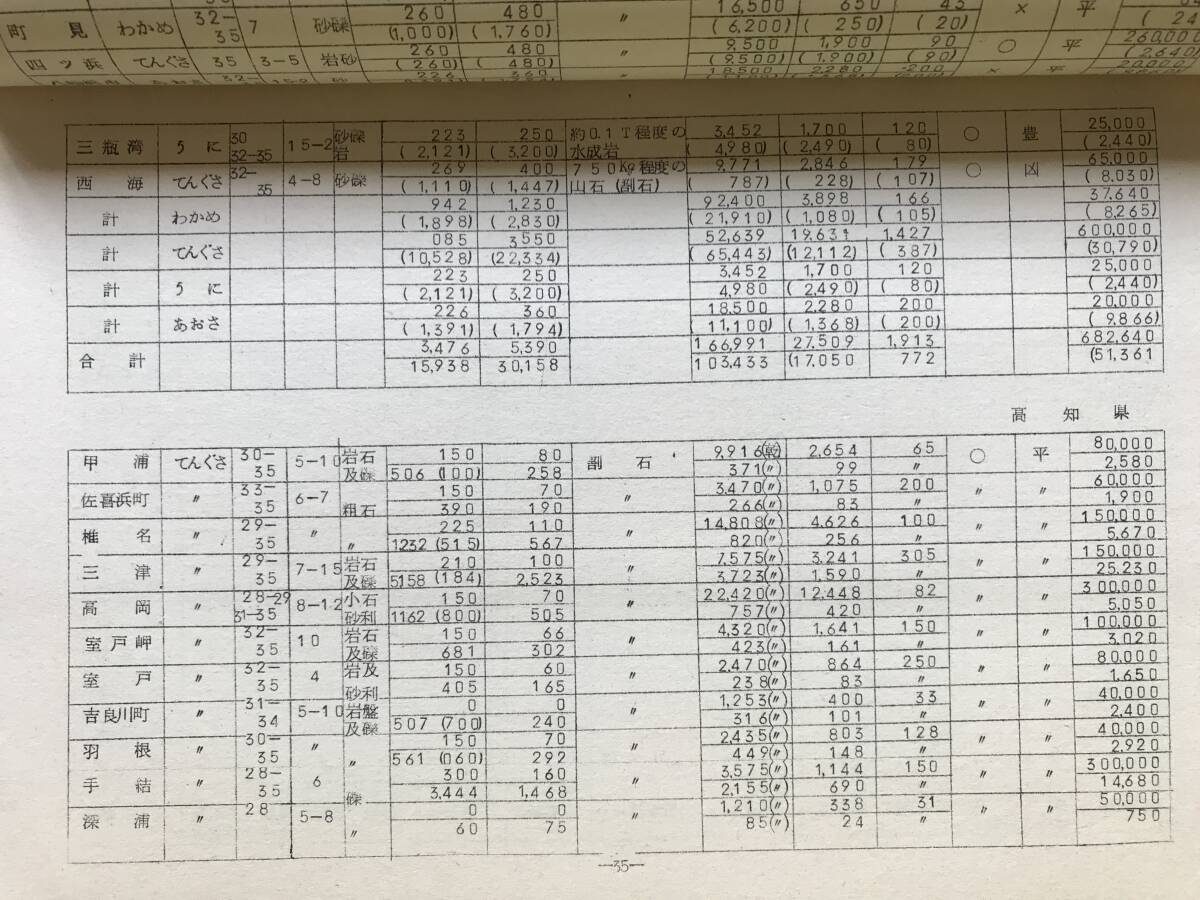 260 480 16,500 650 43
町見 わかめ 32-35 7 砂礫 (1,000) (1,760) 〃 (6,200) (250) (20) × 平
260 480 9,500 1,900 90 260,000
四ツ浜 てんぐさ 35 3-5 岩砂 (260) (480) 〃 (9,500) (1,900) (90) ○ 平 (2,640)
226 360 18,500 2280 200 20,000
三瓶湾 うに 30 32-35 15-2 砂礫岩 223 250 約0.1T程度の 3,452 1,700 120 ○ 豊 25,000
(2,121) (3,200) 水成岩 (4,980) (2,490) (80) (2,440)
西海 てんぐさ 32-35 4-8 砂礫 269 400 750kg程度の 9,771 2,846 1.79 ○ 凶 65,000
(1,110) (1,447) 山石(割石) (787) (228) (107) (8,030)
計 わかめ 942 1,230 92,400 3,898 166 37,640
(1,898) (2,830) (21,910) (1,080) (105) (8,265)
計 てんぐさ 085 3550 52,639 19,631 1,427 600,000
(10,528) (22,334) (65,443) (12,112) (387) (30,790)
計 うに 223 250 3,452 1,700 120 25,000
(2,121) (3,200) (4,980 (2,490) (80) (2,440)
計 あおさ 226 360 18,500 2,280 200 20,000
(1,391) (1,794) (11,100) (1,368) (200) (9,866)
合計 3,476 5,390 166,991 27,509 1,913 682,640
15,938 30,158 103,433 (17,050 772 (51,361
高知県
甲浦 てんぐさ 30-35 5-10 岩石及礫 150 80 割石 9,916(乾) 2,654 65 ○ 平 80,000
506 (100) 258 371(〃) 99 〃 2,580
佐喜浜町 〃 33-35 6-7 粗石 150 70 〃 3,470(〃) 1,075 200 〃 〃 60,000
390 190 266(〃) 83 〃 1,900
椎名 〃 29-35 〃 〃 225 110 〃 14,808(〃) 4,626 100 〃 〃 150,000
1232 (515) 567 820(〃) 256 〃 5,670
三津 〃 29-35 7-15 岩石及礫 210 100 〃 7,575(〃) 3,241 305 〃 〃 150,000
5158 (184) 2,523 3,723(〃) 1,590 〃 25,230
高岡 〃 28-29 31-35 8-12 小石砂利 150 70 〃 22,420(〃) 12,448 82 〃 〃 300,000
1162 (800) 505 757(〃) 420 〃 5,050
室戸岬 〃 32-35 10 岩石及礫 150 66 〃 4,320(〃) 1,641 150 〃 〃 100,000
681 302 423(〃) 161 〃 3,020
室戸 〃 32-35 4 岩及砂利 150 60 〃 2,470(〃) 864 250 〃 〃 80,000
405 165 238(〃) 83 〃 1,650
吉良川町 〃 31-34 5-10 岩盤及礫 0 0 〃 1,253(〃) 400 33 〃 〃 40,000
507 (700) 240 316(〃) 101 〃 2,400
羽根 〃 30-35 〃 〃 150 70 〃 2,435(〃) 803 128 〃 〃 40,000
561 (060) 292 449(〃) 148 〃 2,920
手結 〃 28-35 6 礫 300 160 〃 3,575(〃) 1,144 150 〃 〃 300,000
3,444 1,468 2,155(〃) 690 〃 14,680
深浦 〃 28 5-8 〃 0 0 〃 1,210(〃) 338 31 〃 〃 50,000
60 75 85(〃) 24 〃 750
—35—